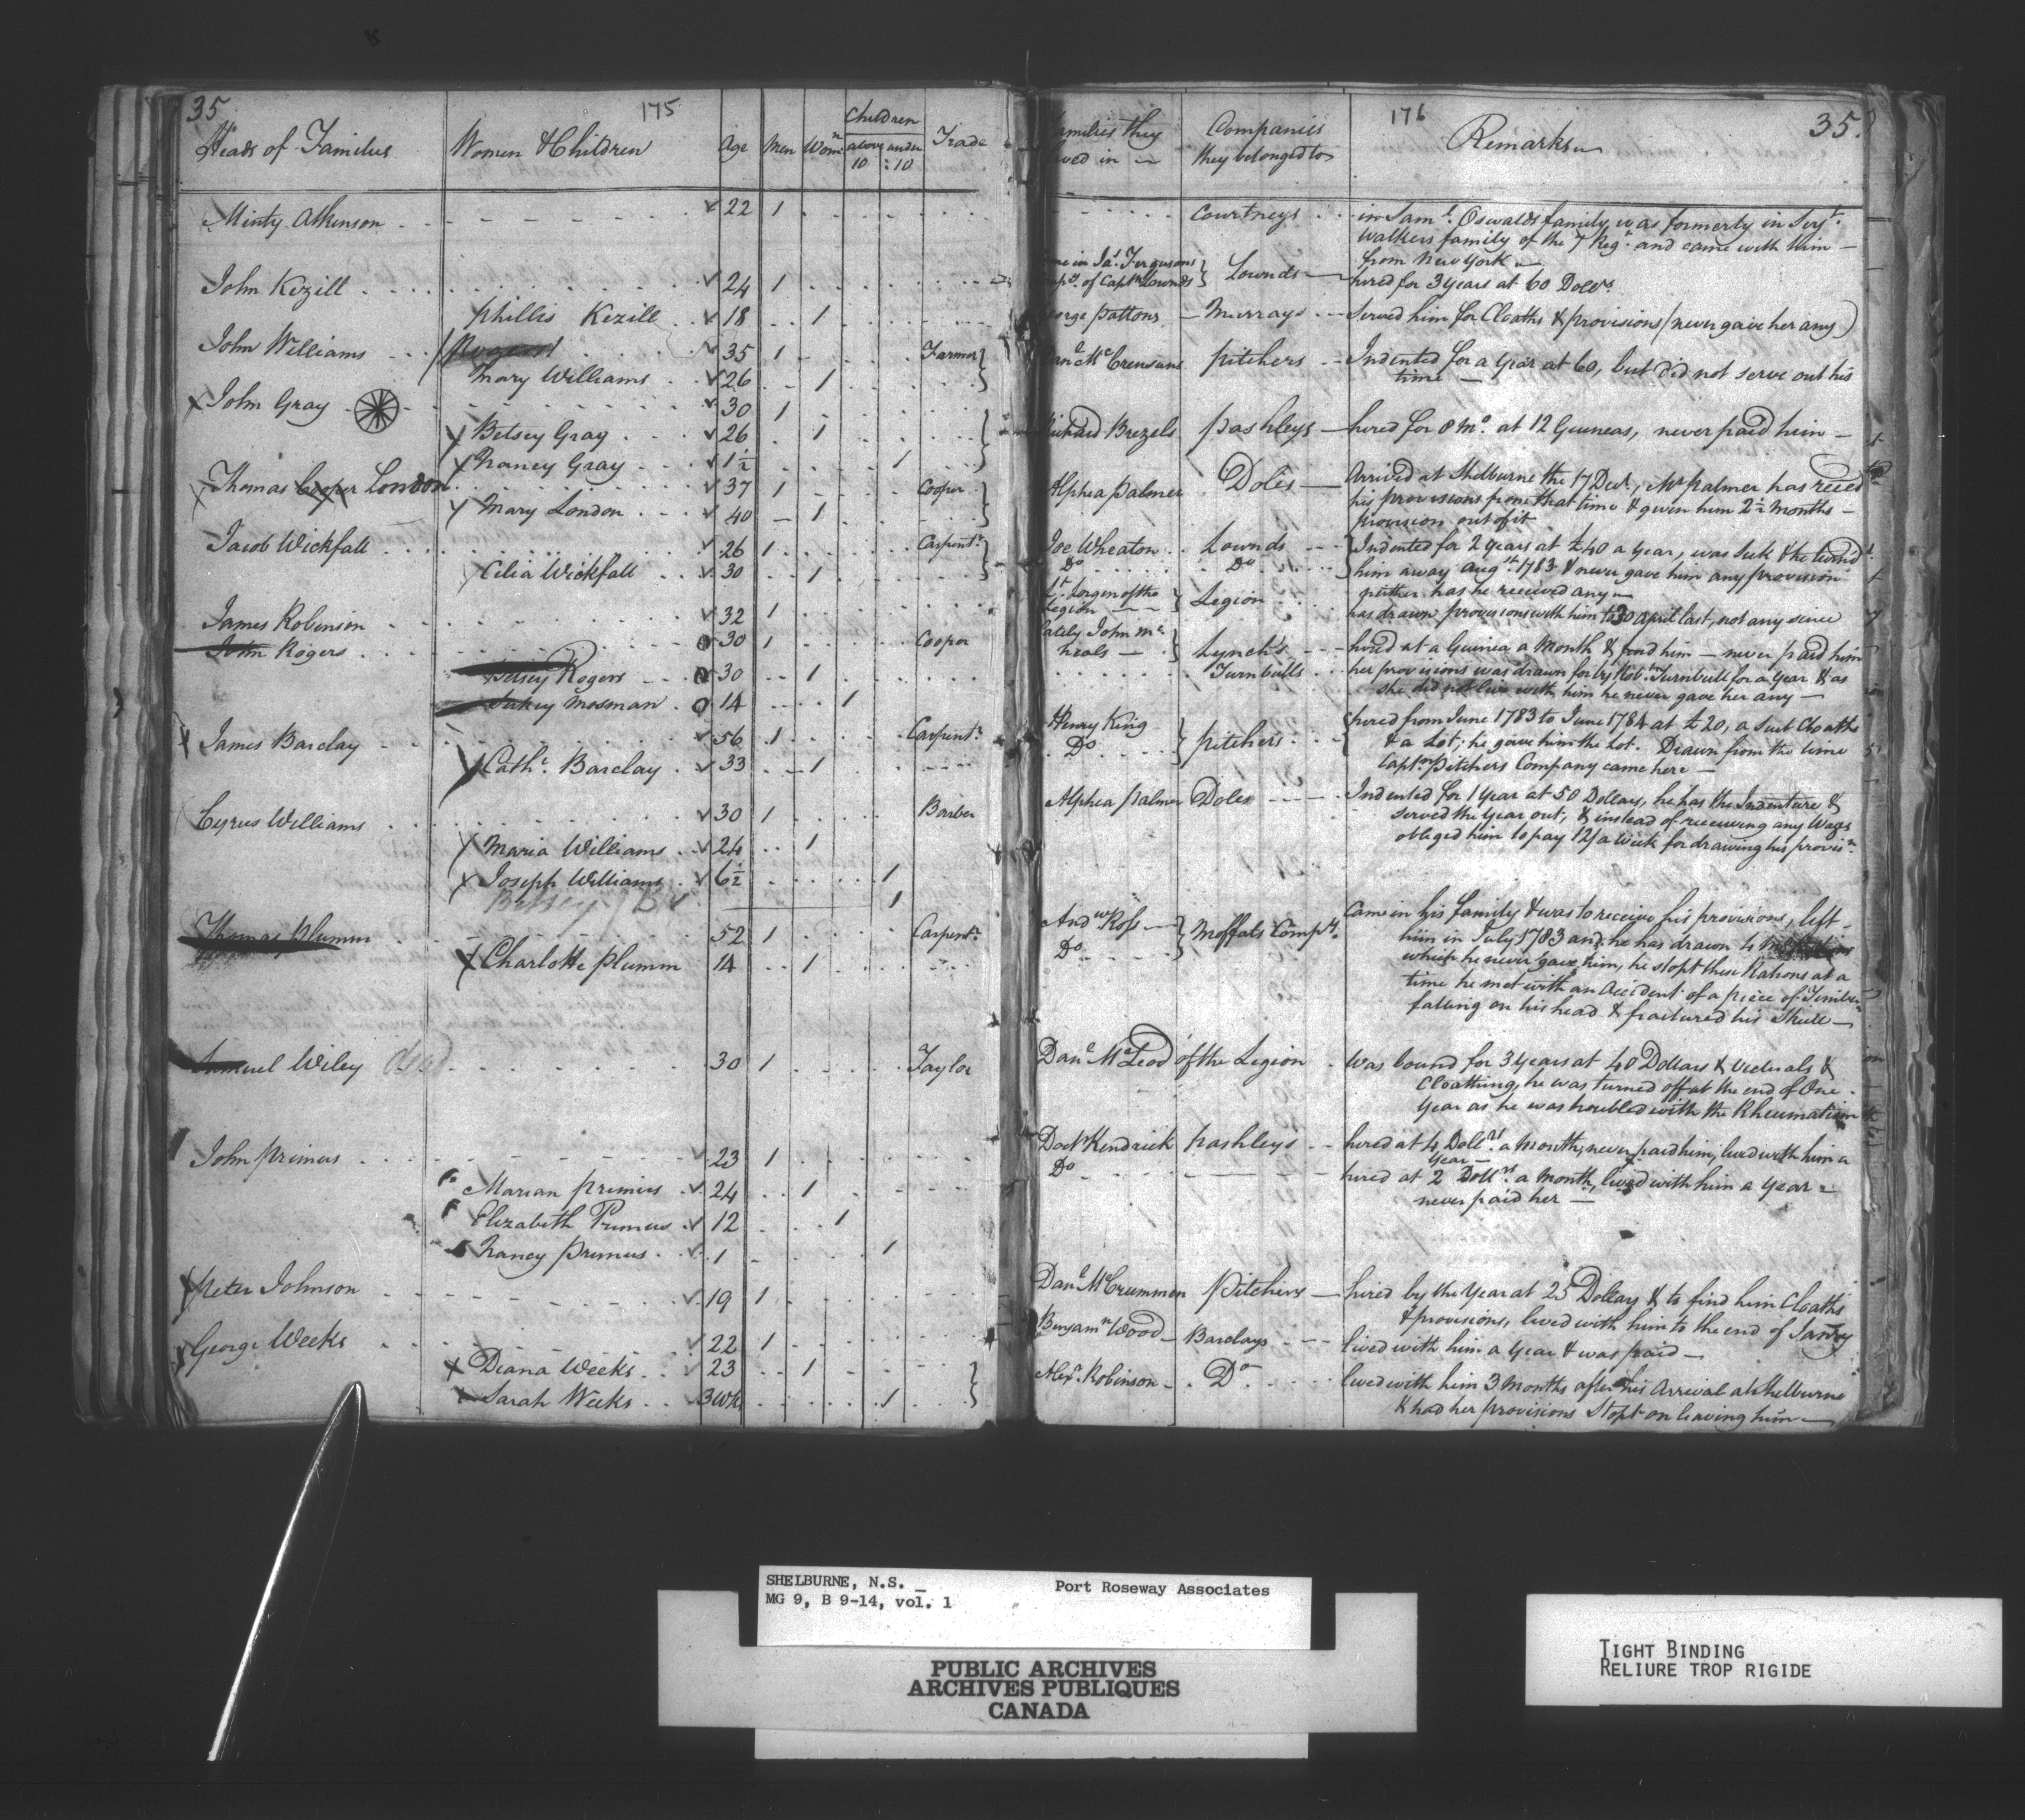 35 175
Heads of Families Women & Children Age Men Wom.n Children above 10 under 10 Trade
Minty Atkinson 22 1
John Kizill 24 1
Phillis Kizill 18 1
John Williams 35 1 Farmer
Mary Williams 26 1
John Gray 30 1
Betsey Gray 26 1
Nancy Gray 1½ 1
Thomas Cooper London 37 1 Cooper
Mary London 40 1
Jacob Wickfall 26 1 Carpent.r
Cilia Wickfall 30 1
James Robinson 32 1
John Rogers 30 1 Cooper
Betsey Rogers 30 1
Sukey Mosman 14 1
James Barclay 56 1 Carpent.r
Cath.e Barclay 33 1
Cyrus Williams 30 1 Barber
Maria Williams 24 1
Joseph Williams 6½ 1
Betsey 1
Thomas Plumm 52 1 Carpent.r
Charlotte Plumm 14 1
Samuel Wiley Dead 30 1 Taylor
John Primus 23 1
Marian Primus 24 1
Elizabeth Primus 12 1
Nancy Primus 1 1
Peter Johnson 19 1
George Weeks 22 1
Diana Weeks 23 1
Sarah Weeks 3 Wks 1
176 35
Families they lived in Companies they belonged to Remarks
Courtneys in Sam.l Oswalds family was formerly in Serj.t
Walkers family of the 7 Reg.t and came with him
from New York
in Ja.s Fergusons
of Capt.n Lownds Lownds hired for 3 years at 60 Doll.s
George Pattons Murrays Served him for Cloaths & provisions (never gave her any)
Dan.l McCrensans Pitchers Indented for a Year at 60, but did not serve out his
time
Richard Brezels Pashleys hired for 8 Mo. at 12 Guineas, never paid him
Alphea Palmer Doles Arrived at Shelburne the 17 Dec.r, Mr Palmer has rec.ed
his provisions from that time & given him 2½ months
provision out of it
Joe Wheaton Lownds Indented for 2 years at £40 a year, was Sick & he turn'd
Do Do him away Aug.st 1783 & never gave him any provision
neither has he received any
Lt. Jorgen of the
Legion Legion has drawn provisions with him to 30 April last, not any since
lately John Mc
Neals Lynch's hired at a Guinea a Month & found him — never paid him
Turnbulls her provisions was drawn for by Rob.t Turnbull for a year & as
she did not live with him he never gave her any
Henry King
Do Pitchers hired from June 1783 to June 1784 at £20, a Suit Cloaths
& a Lot; he gave him the Lot. Drawn from the time
Capt.n Pitchers Company came here
Alphea Palmer Doles Indented for 1 Year at 50 Dollars, he has the Indenture &
served the Year out, & instead of receiving any Wages
obliged him to pay 12/ a Week for drawing his provis.n
And.w Ross
Do Moffats Comp.y Came in his family & was to receive his provisions, left
him in July 1783 and he has drawn
which he never gave him, he stopt these Rations at a
time he met with an Accident of a piece of Timber
falling on his head & fractured his Skull
Dan.l McLeod of the Legion Was bound for 3 Years at 40 Dollars & Victuals &
Cloathing, he was turned off at the end of One
Year as he was troubled with the Rheumatism
Doct.r Kendrick Pashleys hired at 4 Doll.rs a Month, never paid him, lived with him a
Year
Do hired at 2 Doll.rs a month, lived with him a Year
never paid her
Dan.l McCrummen Pitchers hired by the Year at 25 Dollars & to find him Cloaths
& provisions, lived with him to the end of Jan.ry
Benjam.n Wood Barclays lived with him a Year & was paid
Alex.r Robinson Do lived with him 3 Months after his Arrival at Shelburne
& had her provisions Stopt on leaving him
SHELBURNE, N.S. _ Port Roseway Associates
MG 9, B 9-14, vol. 1
PUBLIC ARCHIVES
ARCHIVES PUBLIQUES
CANADA
TIGHT BINDING
RELIURE TROP RIGIDE